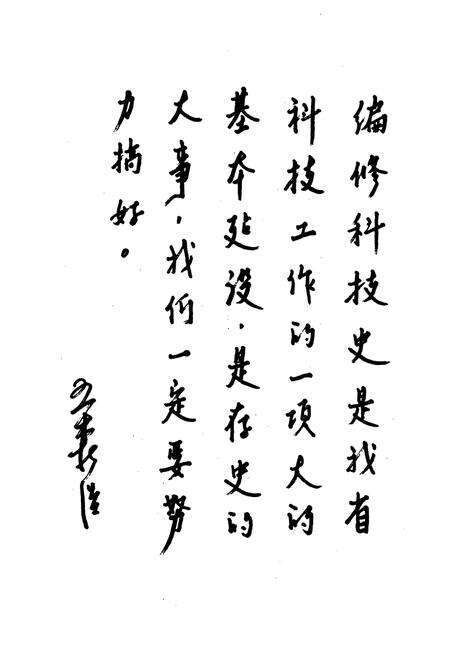 编修科技史是我省
科技工作的一项大的
基本建设，是存史的
大事，我们一定要努
力搞好。